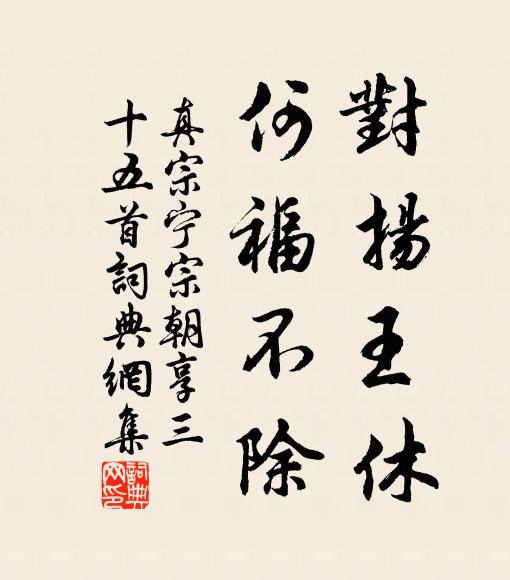 對揚王休
何福不除
真宗宁宗朝享三
十五首詞典網集
詞典
网印